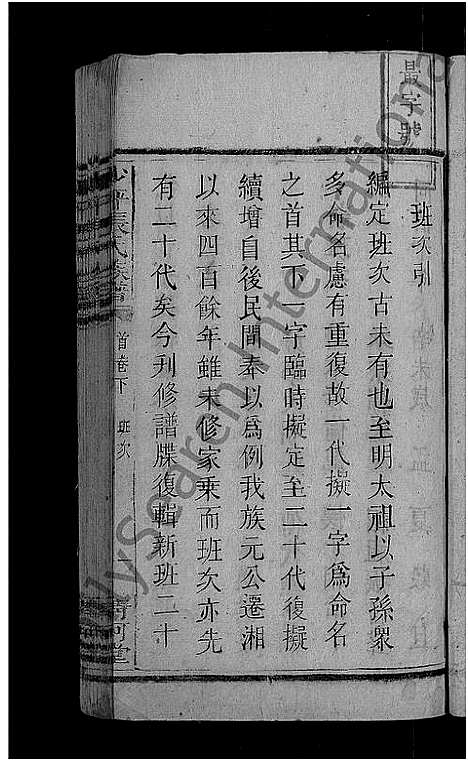 最字號
班次引
編定班次古未有也至明太祖以子孫衆
多命名慮有重復故一代擬一字爲命名
之首其下一字臨時擬定至二十代復擬
續增自後民間奉以爲例我族元公遷湘
以來四百餘年雖未修家乘而班次亦先
有二十代矣今刋修譜牒復輯新班二十
張氏家譜 首卷下 班次 一
MySearch International